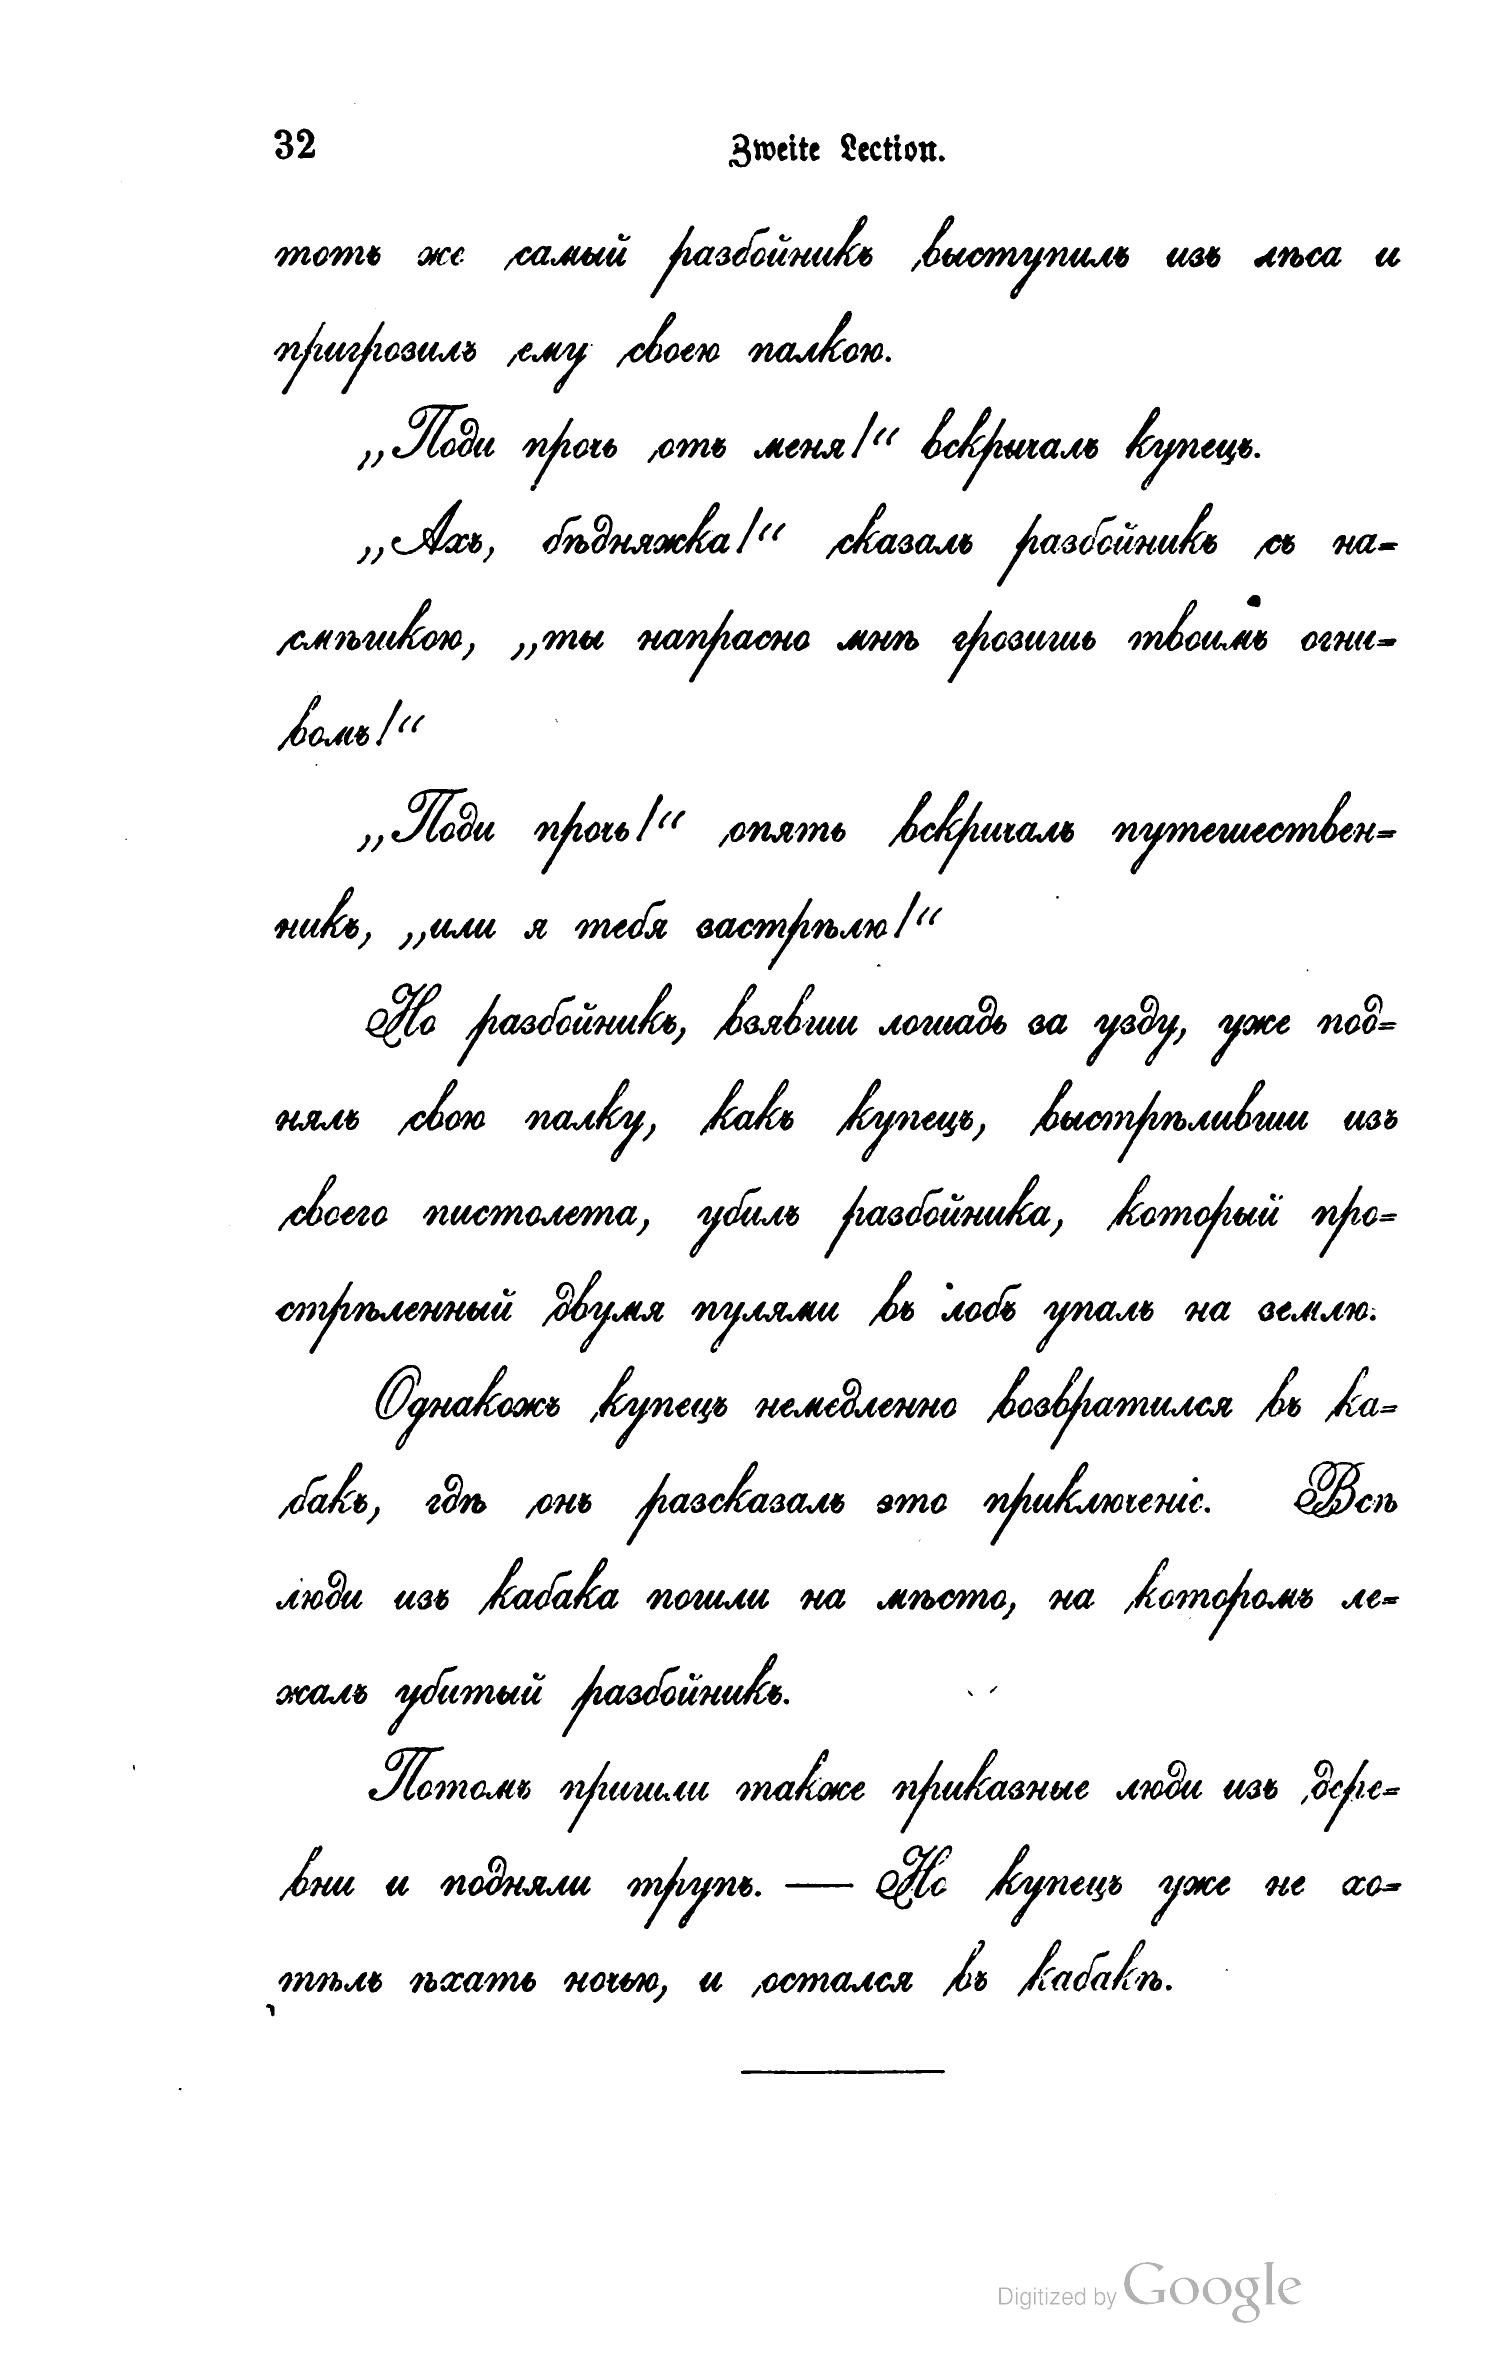 32 Zweite Lection.
тотъ же самый разбойникъ выступилъ изъ лѣса и
пригрозилъ ему своею палкою.
„Поди прочь отъ меня!“ вскрычалъ купецъ.
„Ахъ, бѣдняжка!“ сказалъ разбойникъ съ на=
смѣшкою, „ты напрасно мнѣ грозишь твоимъ огни=
вомъ!“
„Поди прочь!“ опять вскричалъ путешествен=
никъ, „или я тебя застрѣлю!“
Но разбойникъ, взявши лошадь за узду, уже под=
нялъ свою палку, какъ купецъ, выстрѣливши изъ
своего пистолета, убилъ разбойника, который про=
стрѣленный двумя пулями въ лобъ упалъ на землю.
Однакожъ купецъ немедленно возвратился въ ка=
бакъ, гдѣ онъ разсказалъ это приключеніе. Всѣ
люди изъ кабака пошли на мѣсто, на которомъ ле=
жалъ убитый разбойникъ.
Потомъ пришли также приказные люди изъ дере=
вни и подняли трупъ. — Но купецъ уже не хо=
тѣлъ ѣхать ночью, и остался въ кабакѣ.
Digitized by Google